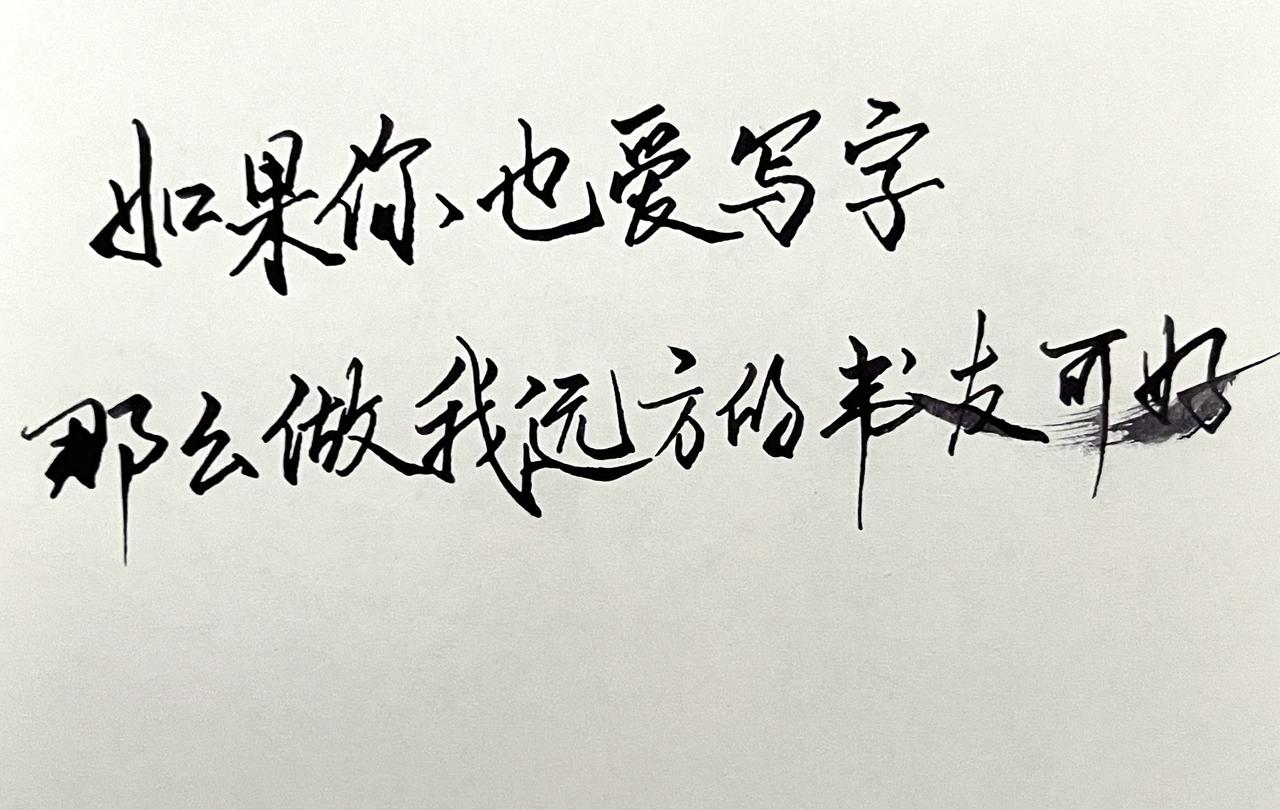 如果你也爱写字
那么做我远方的书友可好